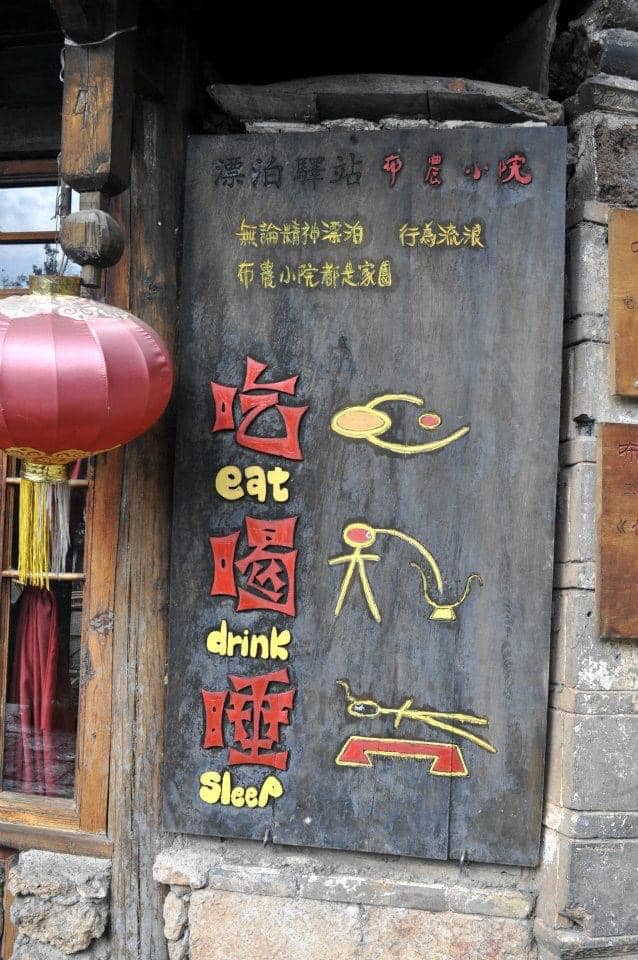 漂泊驛站 布農小院
無論精神漂泊 行為流浪
布農小院都是家園
吃
eat
喝
drink
睡
sleep